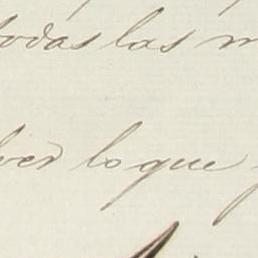 todas las
ver lo que